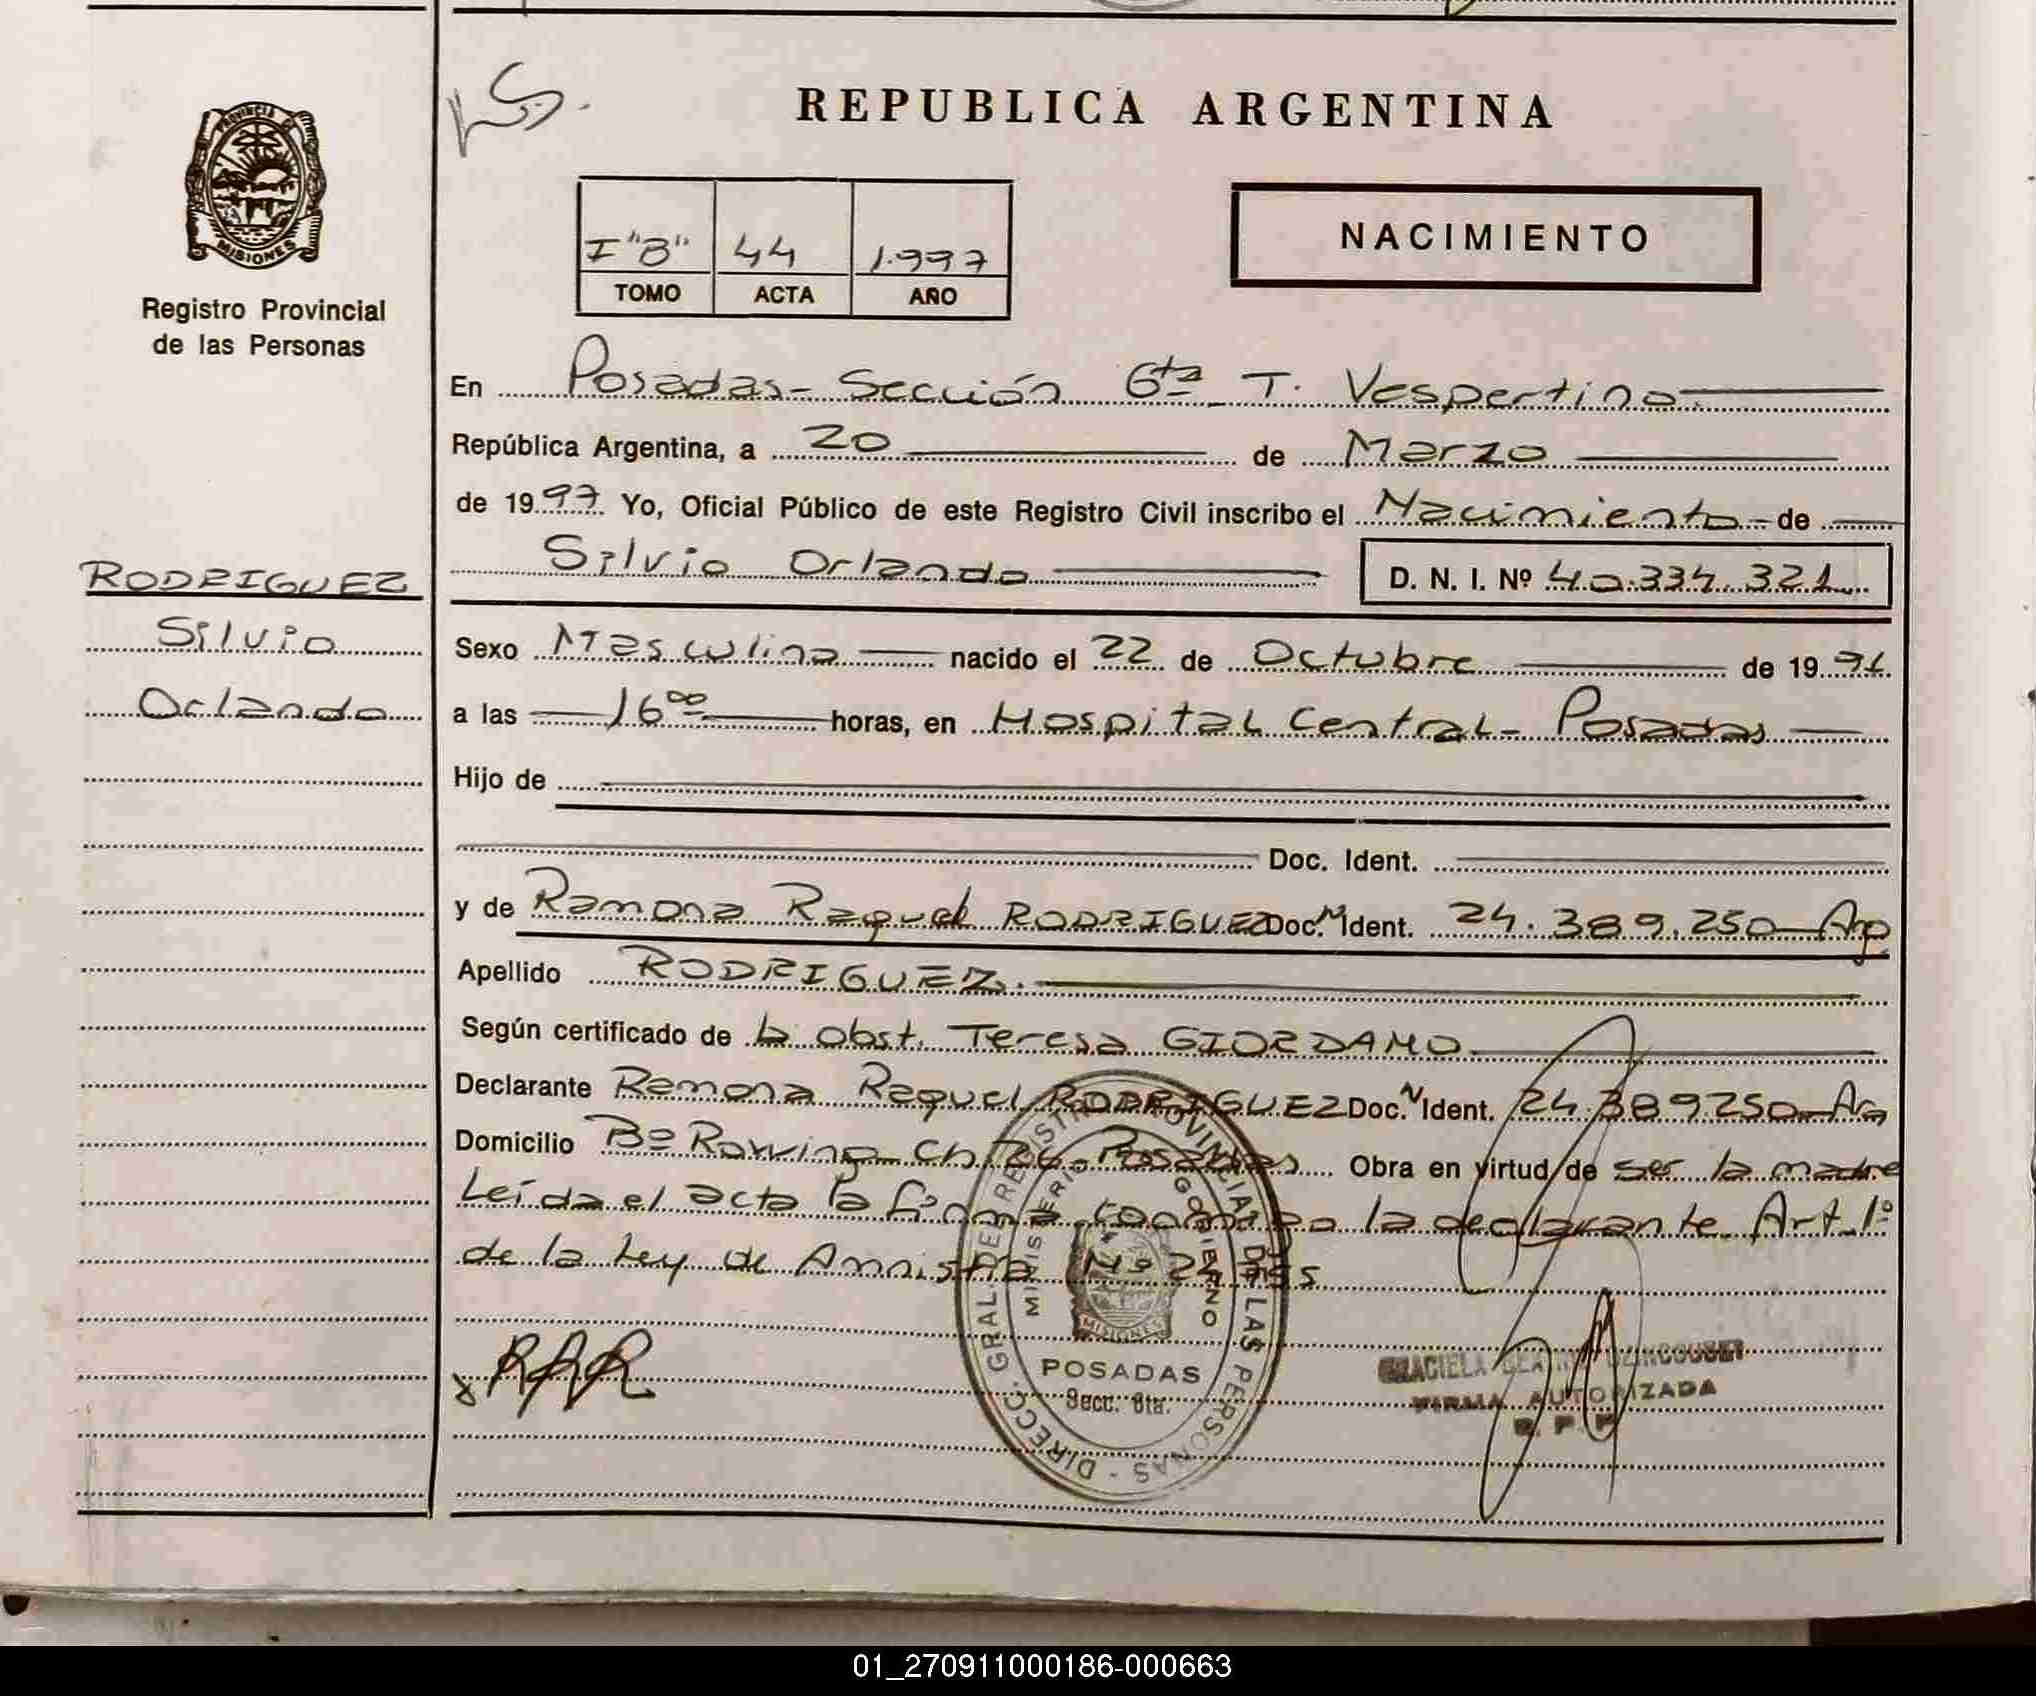 REPUBLICA ARGENTINA
PROVINCIA DE
MISIONES
Registro Provincial
de las Personas
I "B" 44 1.997
TOMO ACTA AÑO
NACIMIENTO
En Posadas - Sección 6ta T. Vespertino
República Argentina, a 20 de Marzo
de 1997 Yo, Oficial Público de este Registro Civil inscribo el Nacimiento de
Silvio Orlando D. N. I. Nº 40.334.321
RODRIGUEZ
Silvio
Orlando
Sexo Masculino nacido el 22 de Octubre de 1996
a las 16 00 horas, en Hospital Central - Posadas
Hijo de
Doc. Ident.
y de Ramona Raquel RODRIGUEZ Doc. N Ident. 24.389.250 - Arg
Apellido RODRIGUEZ.
Según certificado de la obst. Teresa GIORDANO
Declarante Ramona Raquel RODRIGUEZ Doc. N Ident. 24.389250 - Arg
Domicilio Bº Rowing - Posadas Obra en virtud de ser la madre
Leída el acta la firma conmigo la declarante Art. 1º
de la Ley de Amnistía Nº
RAR
DIRECC. GRAL. DEL REGISTRO PROVINCIAL DE LAS PERSONAS -
MINISTERIO GOBIERNO
MISIONES
POSADAS
Secc. 6ta.
GRACIELA
FIRMA AUTORIZADA
01_270911000186-000663